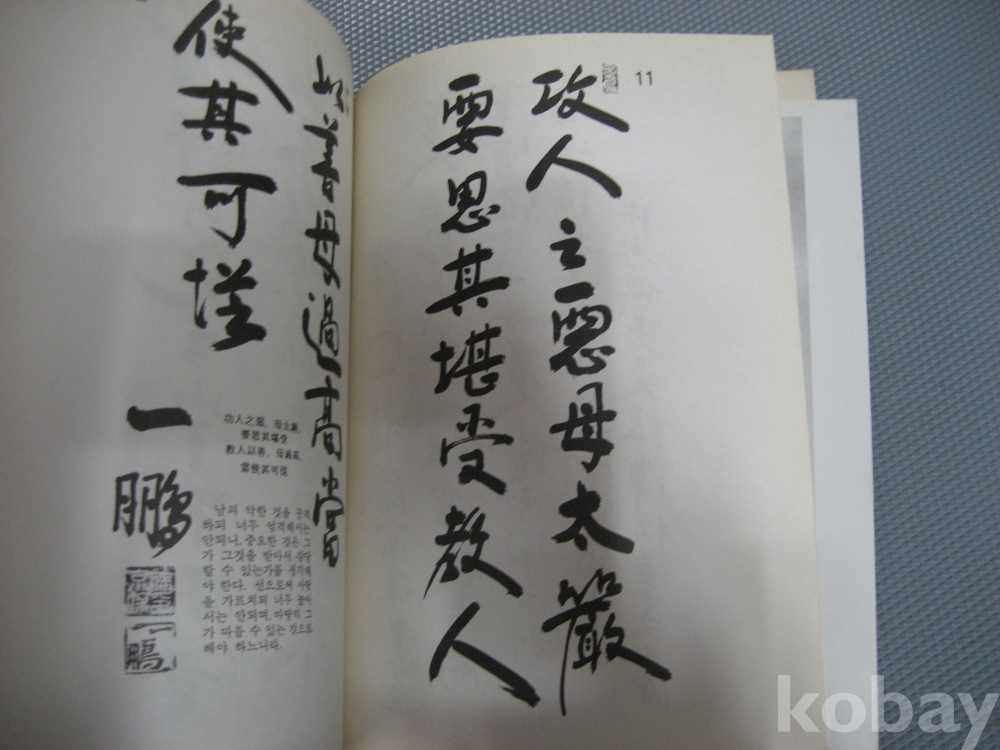 11
攻人之惡母太嚴
要思其堪受教人
以善母過高當
使其可從
一鵬
功人之惡、母太嚴、
要思其堪受
教人以善、母過高、
當使其可從
남의 악한 것을 공격
하되 너무 엄격해서는
안되니, 중요한 것은 그
가 그것을 받아서 감당
할 수 있는가를 생각해
야 한다. 선으로써 사람
을 가르치되 너무 높아
서는 안되며, 마땅히 그
가 따를 수 있는 것으로
해야 하느니라.
kobay